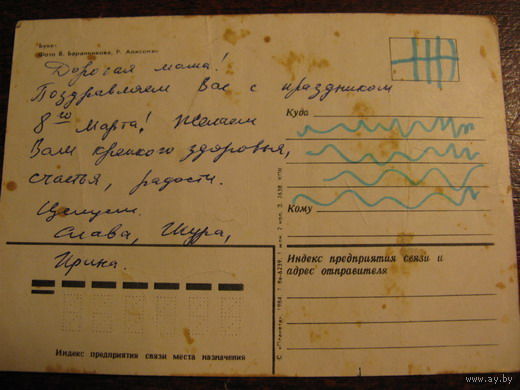 "Букет
Фото В. Баранникова, Р. Алисонян
Дорогая мама!
Поздравляем Вас с праздником
8го Марта! Желаем
Вам крепкого здоровья,
счастья, радости.
Целуем.
Слава, Шура,
Ирина.
Куда
Кому
Индекс предприятия связи и
адрес отправителя
Индекс предприятия связи места назначения
www.ay.by